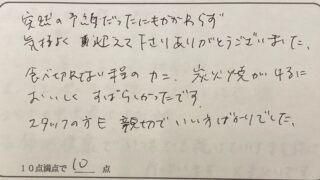 突然の予約だったにもかかわらず
気持よく迎えて下さりありがとうございました。
食べ切れない程のカニ、炭火焼がするに
おいしくすばらしかったです。
スタッフの方も親切でいい方ばかりでした。
10点満点で 10 点